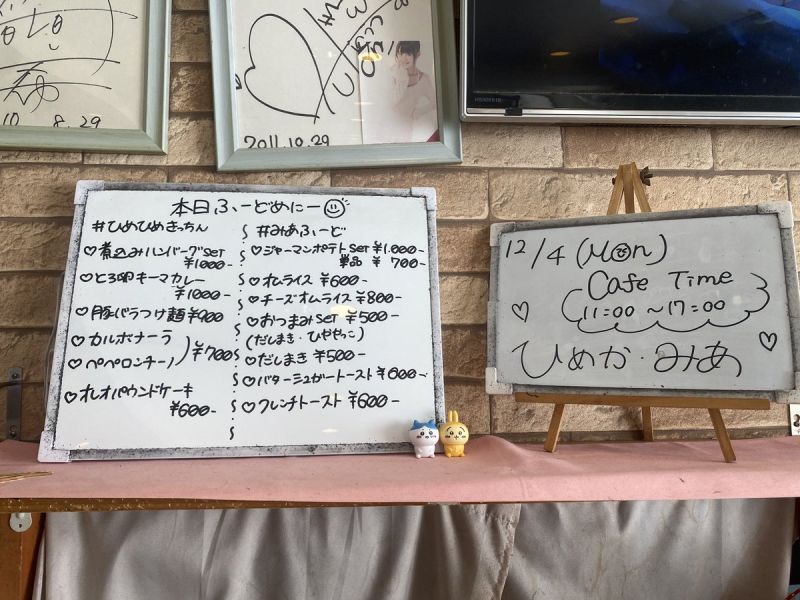 8.29
2011.10.29
本日ふーどめにー
#ひめひめきっちん
♡煮込みハンバーグset
¥1000-
♡とろ卵キーマカレー
¥1000-
♡豚バラつけ麺¥900
♡カルボナーラ
♡ペペロンチーノ
)¥700-
♡オレオパウンドケーキ
¥600-
#みあふーど
♡ジャーマンポテトset ¥1.000-
単品 ¥ 700-
♡オムライス ¥600-
♡チーズオムライス ¥800-
♡おつまみset ¥500-
(だしまき・ひややっこ)
♡だしまき ¥500-
♡バターシュガートースト ¥600-
♡フレンチトースト ¥600-
12/4 (Mon)
Cafe Time
11:00 ~17:00
♡ ♡
ひめか・みあ